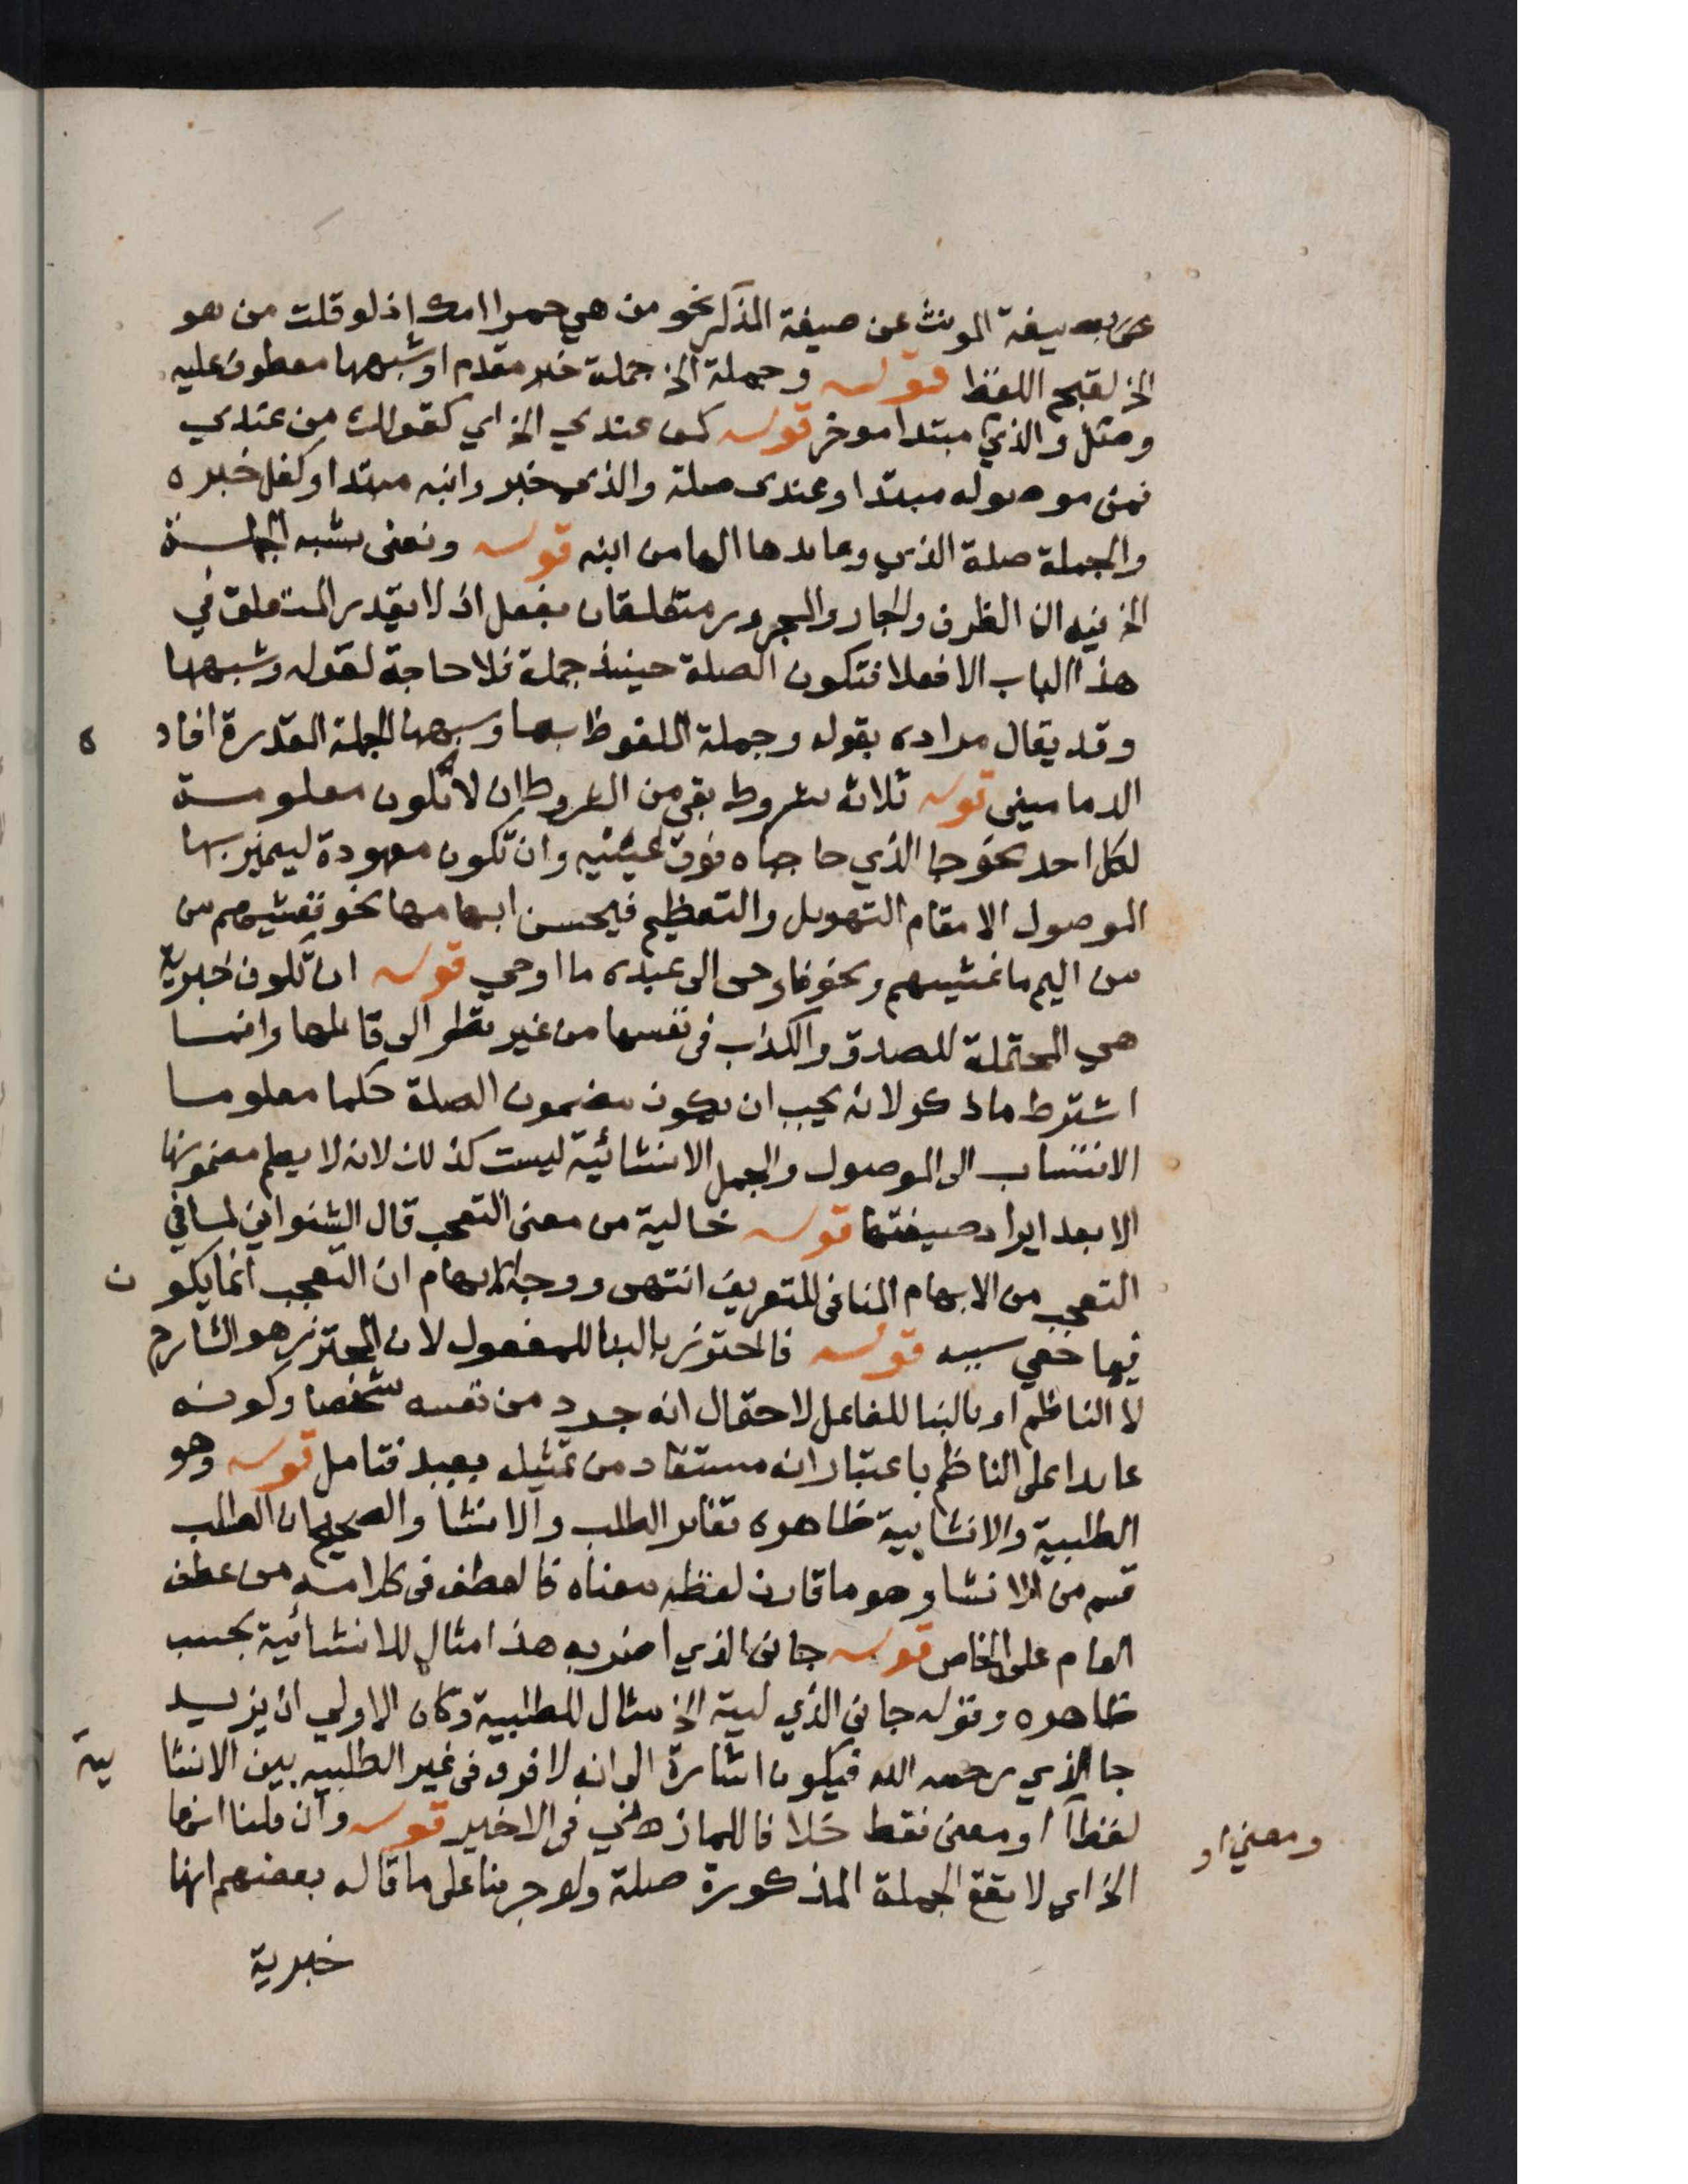 عن بصيغة المونث عن صيغة المذكر نحو من هي حمرا امك اذ لو قلت من هو
الخ لقبح اللفظ قوله وجملة الخ جملة خبر مقدم او شبهها معطوف عليه
ومثل والذي مبتدا موخر قوله كمن عندي الخ اي كقولك من عندي
فمن موصوله مبتدا وعندى صلة والذى خبر وابنه مبتدا وكفل خبره
والجملة صلة الذي وعايدها الها من ابنه قوله ونعنى بشبه الجملة
الخ فيه ان الظرف والجار والمجرور متعلقان بفعل اذ لا يقدر المتعلق في
هذا الباب الا فعلا فتكون الصلة حينيذ جملة فلا حاجة لقوله وشبهها
وقد يقال مراده بقوله وجملة الملفوظ بها وشبهها الجملة المقدرة افاد ه
الدماميني قوله ثلاثة شروط بقي من الشروط ان لا تكون معلومة
لكل احد نحو جا الذي حاجباه فوق عينيه وان تكون معهودة ليميز بها
الموصول الا مقام التهويل والتعظيم فيحسن ابهامها نحو فغشيهم من
من اليم ما غشيهم ونحو فاوحى الى عبده ما اوحي قوله ان تكون خبرية
هي المحتملة للصدق والكذب فى نفسها من غير نظر الى قائلها وانما
اشترط ما ذكر لانه يجب ان يكون مضمون الصلة حكما معلوما
الانتساب الى الموصول والجمل الانشائية ليست كذلك لانه لا يعلم مضمونها
الا بعد ايراد صيغتها قوله خالية من معنى التعجب قال الشنواني لما في
التعجب من الابهام المنافى للتعريف انتهى ووجه الابهام ان التعجب انما يكو ن
فيما خفي سببه قوله فاحترز بالبنا للمفعول لان المحترز هو الشارح
لا الناظم او بالبنا للفاعل لاحتمال انه جرد من نفسه شخصا وكونه
عايدا على الناظم باعتبار انه مستفاد من تمثيله بعيد فتامل قوله وهو
الطلبية والانشايية ظاهره تغاير الطلب والانشا والصحيح ان الطلب
قسم من الانشا وهو ما قارن لفظه معناه فالعطف فى كلامه من عطف
العام على الخاص قوله جانى الذي اضربه هذا مثال للانشائية بحسب
ظاهره وقوله جانى الذي ليته الخ مثال للطلبية وكان الاولي ان يزيد
جا الذي رحمه الله فيكون اشارة الى انه لا فرق فى غير الطلبيه بين الانشا ية
لفظا او معنى فقط خلافا للمازني فى الاخير قوله وان قلنا انها
ومعني او
الخ اي لا تقع الجملة المذكورة صلة ولو جرينا على ما قاله بعضهم انها
خبرية